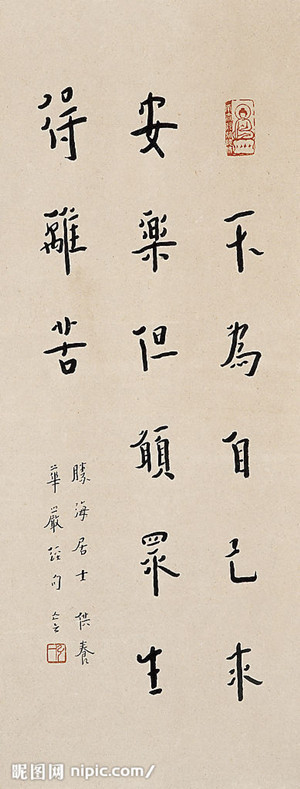 不为自己求
安楽但願眾生
得離苦
勝海居士供養
華嚴經句
昵图网 nipic.com/